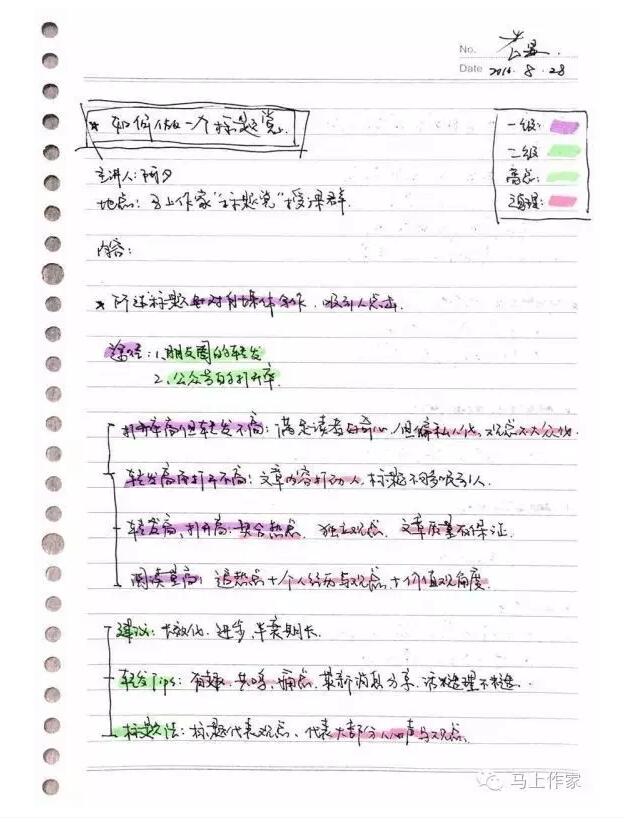 No. 老墨.
Date 2016. 8. 28
* 如何做一个标题党.
一级:
二级
高亮:
主讲人: 阿夕
地点: 马上作家"标题党"授课群.
内容:
* 所谓标题 针对自媒体 , 吸引人点击.
途径: 1、朋友圈的转发
2、公众号的打开率.
打开率高但转发不高: 满足读者好奇心, 但偏私人化, 观点不大众化.
转发高而打开不高: 文章内容打动人, 标题不够吸引人.
转发高, 打开高: 契合热点、独立观点、文章质量有保证.
阅读量高: 追热点+个人经历与观点+价值观角度.
建议: 长效化、进步, 早衰期长.
转发Tips: 有趣、共鸣、痛点、最新消息分享、话糙理不糙.
标题法: 标题代表观点、代表大部分人心声与观点.
马上作家